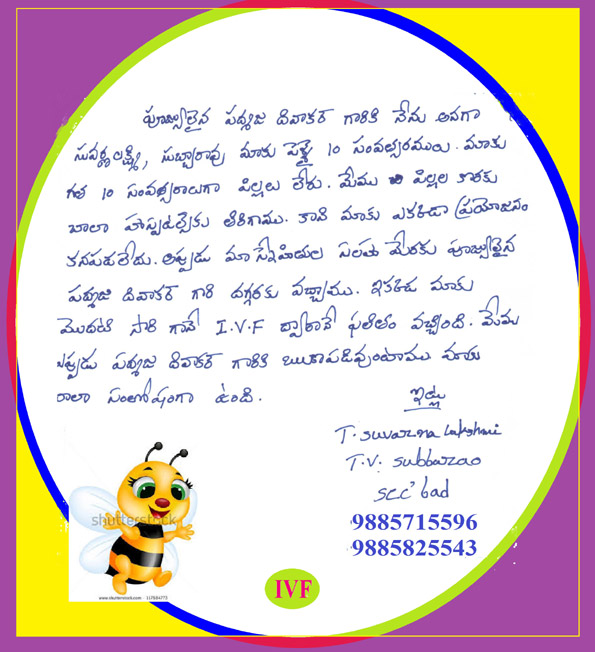 పూజ్యులైన పద్మజ దివాకర్ గారికి నేను అనగా
సువర్ణలక్ష్మి, సుబ్బారావు మాకు పెళ్ళై 10 సంవత్సరములు. మాకు
గత 10 సంవత్సరాలుగా పిల్లలు లేరు. మేము పిల్లల కొరకు
చాలా హాస్పటల్స్‌కు తిరిగాము. కాని మాకు ఎక్కడా ప్రయోజనం
కనపడలేదు. అప్పుడు మా స్నేహితుల సలహా మేరకు పూజ్యులైన
పద్మజ దివాకర్ గారి దగ్గరకు వచ్చాము. ఇక్కడ మాకు
మొదటి సారి గానే I.V.F ద్వారానే ఫలితం వచ్చింది. మేము
ఎప్పుడు పద్మజ దివాకర్ గారికి ఋణపడివుంటాము మాకు
చాలా సంతోషంగా ఉంది.
ఇట్లు
T. Suvarna Lakshmi
T.V. Subbarao
Sec' bad
9885715596
9885825543
shutterstock
IVF